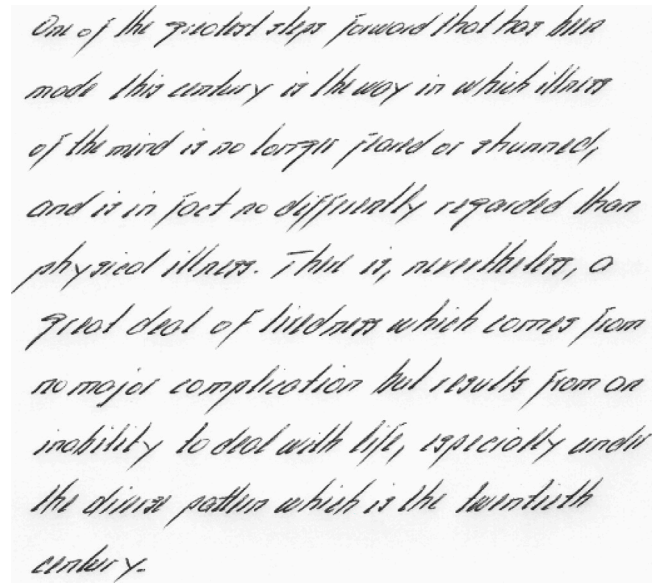 One of the greatest steps forward that has been
made this century is the way in which illness
of the mind is no longer feared or shunned,
and is in fact no differently regarded than
physical illness. There is, nevertheless, a
great deal of tiredness which comes from
no major complication but results from an
inability to deal with life, especially under
the diverse pattern which is the twentieth
century.